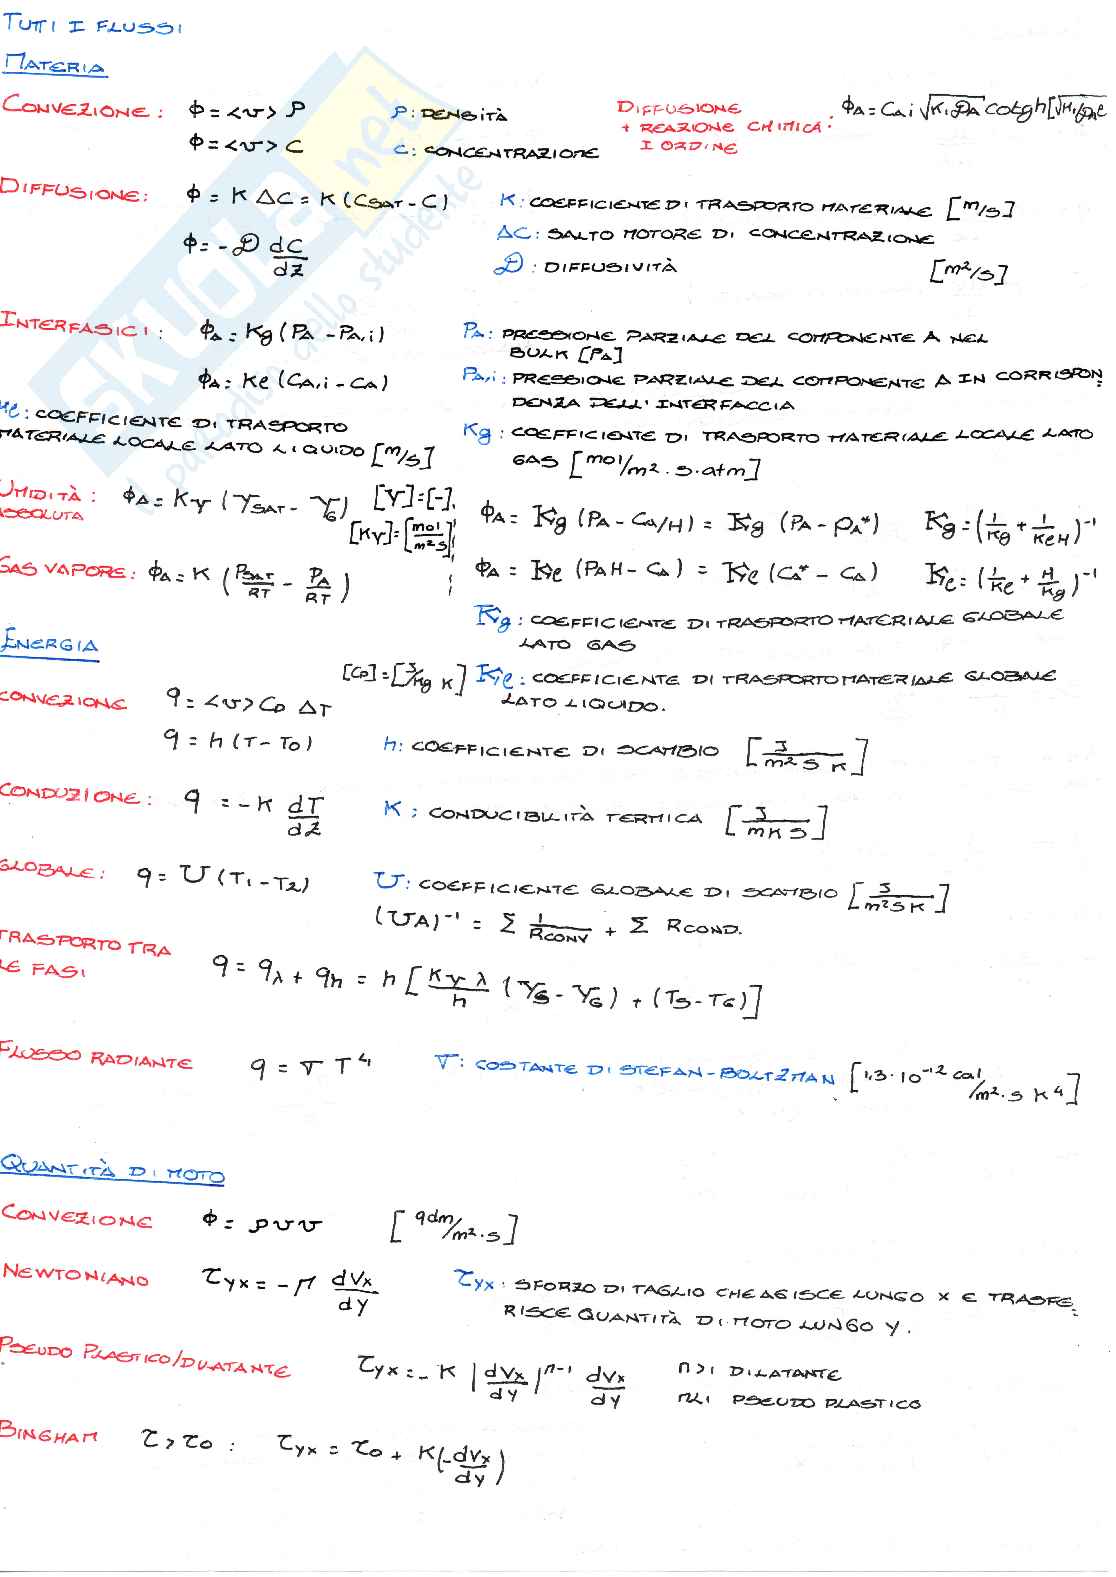 TUTTI I FLUSSI
MATERIA
CONVEZIONE: Φ = <v> ρ ρ: DENSITÀ
Φ = <v> C C: CONCENTRAZIONE
DIFFUSIONE + REAZIONE CHIMICA: I ORDINE ΦA = CAi √K₁𝒟A cotgh[√K₁/𝒟A ℓ
DIFFUSIONE: Φ = K ΔC = K (CSAT - C) K: COEFFICIENTE DI TRASPORTO MATERIALE [m/s]
ΔC: SALTO MOTORE DI CONCENTRAZIONE
Φ = -𝒟 dC/dz 𝒟: DIFFUSIVITÀ [m²/s]
INTERFASICI: ΦA = Kg (PA - PA,i) PA: PRESSIONE PARZIALE DEL COMPONENTE A NEL
BULK [PA]
ΦA = Ke (CA,i - CA) PA,i: PRESSIONE PARZIALE DEL COMPONENTE A IN CORRISPON
DENZA DELL'INTERFACCIA
Ke: COEFFICIENTE DI TRASPORTO
MATERIALE LOCALE LATO LIQUIDO [m/s]
Kg: COEFFICIENTE DI TRASPORTO MATERIALE LOCALE LATO
GAS [mol/m²·s·atm]
UMIDITÀ: ΦA = KY (YSAT - YG) [Y]=[-]
ASSOLUTA [KY]=[mol/m²s]
ΦA = Kg (PA - CA/H) = Kg (PA - PA*) Kg = (1/Kg + 1/KeH)⁻¹
GAS VAPORE: ΦA = K (PSAT/RT - PA/RT)
ΦA = Ke (PAH - CA) = Ke (CA* - CA) Ke = (1/Ke + H/Kg)⁻¹
Kg: COEFFICIENTE DI TRASPORTO MATERIALE GLOBALE
LATO GAS
ENERGIA
[Cp]=[J/Kg K] Ke: COEFFICIENTE DI TRASPORTO MATERIALE GLOBALE
LATO LIQUIDO.
CONVEZIONE q = <v> Cp ΔT
q = h (T - T0) h: COEFFICIENTE DI SCAMBIO [J/m² s K]
CONDUZIONE: q = -K dT/dz K: CONDUCIBILITÀ TERMICA [J/m K s]
GLOBALE: q = U (T1 - T2) U: COEFFICIENTE GLOBALE DI SCAMBIO [J/m² s K]
(UA)⁻¹ = Σ 1/RCONV + Σ RCOND.
TRASPORTO TRA
LE FASI q = qλ + qh = h [KYλ/h (YS - YG) + (TS - TG)]
FLUSSO RADIANTE q = σ T⁴ σ: COSTANTE DI STEFAN-BOLTZMAN [1,3·10⁻¹² cal/m²·s K⁴]
QUANTITÀ DI MOTO
CONVEZIONE Φ = ρvv [qdm/m²·s]
NEWTONIANO τyx = -μ dVx/dy τyx: SFORZO DI TAGLIO CHE AGISCE LUNGO X E TRASFE
RISCE QUANTITÀ DI MOTO LUNGO Y.
PSEUDO PLASTICO/DILATANTE τyx = -K |dVx/dy|ⁿ⁻¹ dVx/dy n>1 DILATANTE
n<1 PSEUDO PLASTICO
BINGHAM τ > τ0: τyx = τ0 + K(-dVx/dy)
skuola.net
il paradiso dello studente